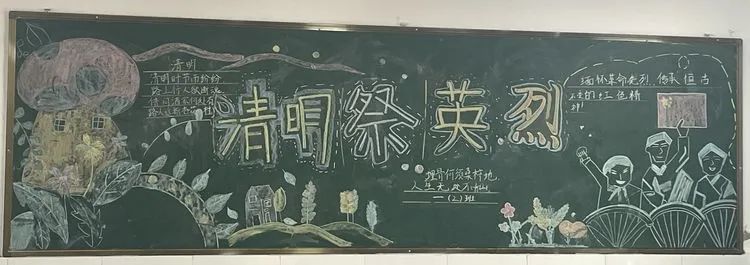 清明
清明时节雨纷纷
路上行人欲断魂
借问酒家何处有
路人
清明祭英烈
埋骨何须桑梓地,
人生无处不青山
一(2)班
缅怀革命先烈 传承 恒古
不变的红色精
神!